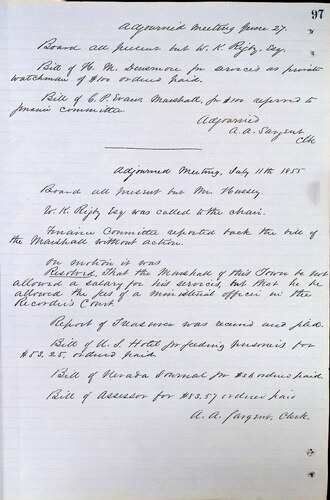 97
Adjourned Meeting June 27.
Board all present but W. K. Rigby, Esq.
Bill of H. M. Densmore for services as private
watchman of $100 ordered paid.
Bill of C. P. Evans Marshall, for $100 referred to
finance committee.
Adjourned
A. A. Sargent
Clk
Adjourned Meeting, July 11th 1855
Board all present but Mr. Hussey.
W. K. Rigby Esq was called to the chair.
Finance Committee reported back the bill of
the Marshall without action.
On motion it was
Resolved, That the Marshall of this Town be not
allowed a salary for his services, but that he be
allowed the fees of a ministerial officer in the
Recorder's Court.
Report of Treasurer was received and filed.
Bill of U. S. Hotel for feeding prisoners for
$53.25, ordered paid.
Bill of Nevada Journal for ordered paid.
Bill of Assessor for $83.57 ordered paid
A. A. Sargent, Clerk.